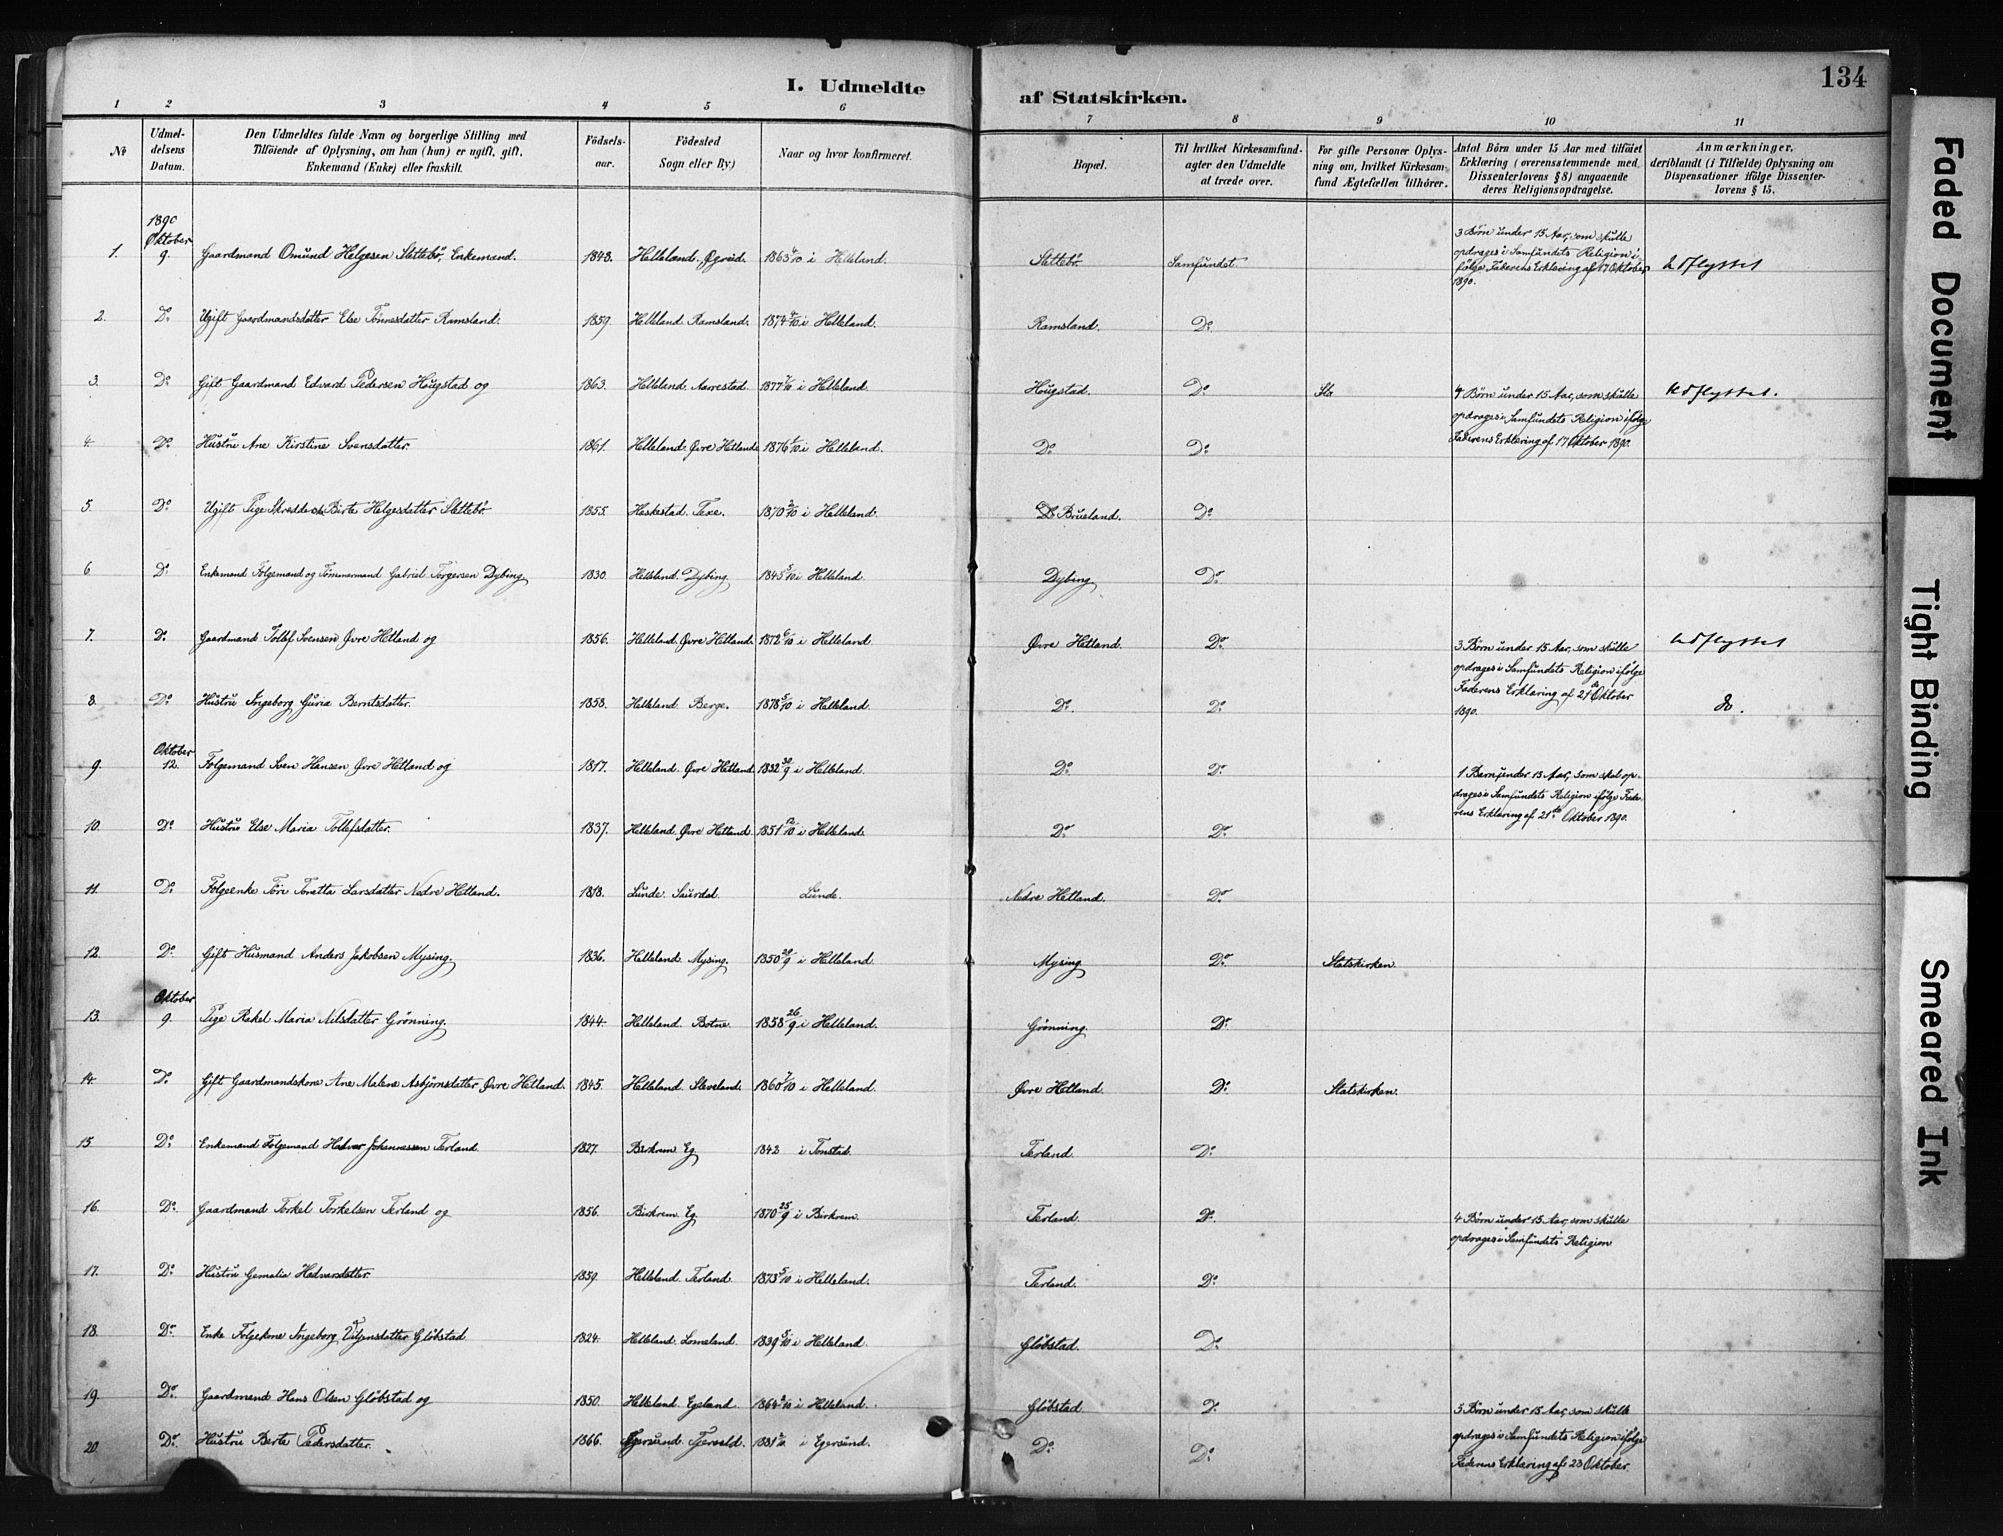 I. Udmeldte af Statskirken. 134
1 2 3 4 5 6 7 8 9 10 11
No
Udmeldelsens Datum.
Den Udmeldtes fulde Navn og borgerlige Stilling med Tilføiende af Oplysning, om han (hun) er ugift, gift, Enkemand (Enke) eller fraskilt.
Födselsaar.
Födested Sogn eller By)
Naar og hvor konfirmeret.
Bopæl.
Til hvilket Kirkesamfund agter den Udmeldte at træde over.
For gifte Personer Oplysning om, hvilket Kirkesamfund Ægtefællen tilhörer.
Antal Börn under 15 Aar med tilföiet Erklæring (overensstemmende med Dissenterlovens § 8) angaaende deres Religionsopdragelse.
Anmærkninger, deriblandt (i Tilfælde) Oplysning om Dispensationer ifölge Dissenterlovens § 15.
1890
Oktober
1. 9. Gaardmand Omund Helgesen Slettebø, Enkemand. 1848. Helleland. 1863 i Helleland. Slettebø Samfundet. 3 Børn under 15 Aar, som skulle opdrages i Samfundets Religion ifølge Faderens Erklæring af 17 Oktober 1890. Udflyttet
2. Do Ugift Gaardmandsdatter Else Tønnesdatter Ramsland. 1859. Helleland Ramsland. 1874 i Helleland. Ramsland. Do
3. Do Gift Gaardmand Edvard Pedersen Hougstad og 1863. Helleland Aarrestad. 1877 i Helleland. Hougstad. Do 4 Børn under 15 Aar, som skulle opdrages i Samfundets Religion ifølge Faderens Erklæring af 17 Oktober 1890. Udflyttet.
4. Do Hustru Ane Kirstine Svensdatter. 1861. Helleland. Øvre Hetland 1876 i Helleland. Do Do
5. Do Ugift Pige Birte Helgesdatter Slettebø 1855. Heskestad. 1870 i Helleland. Brueland. Do
6. Do Enkemand Følgemand og Tømmermand Gabriel Torgersen Dybing 1830. Helleland. Dybing 1845 i Helleland. Dybing Do
7. Do Gaardmand Tollef Svensen Øvre Hetland og 1856. Helleland Øvre Hetland 1872 i Helleland. Øvre Hetland. Do 3 Børn under 15 Aar, som skulle opdrages i Samfundets Religion ifølge Faderens Erklæring af 21de Oktober 1890. Udflyttet
8. Do Hustru Ingeborg Guria Berntsdatter. 1858. Helleland Berge. 1873 i Helleland. Do. Do do.
Oktober
9. 12. Følgemand Sven Hansen Øvre Hetland og 1817. Helleland. Øvre Hetland 1832 i Helleland. Do Do 1 Barn under 15 Aar, som skal opdrages i Samfundets Religion ifølge Faderens Erklæring af 21de Oktober 1890.
10. Do Hustru Else Maria Tollefsdatter. 1837. Helleland. Øvre Hetland 1851 i Helleland. Do Do
11. Do Følgeenke Tonetta Larsdatter Nedre Hetland. 1818. Lunde. Lunde. Nedre Hetland. Do
12. Do Gift Husmand Anders Jakobsen Mysing. 1836. Helleland. Mysing. 1850 i Helleland. Mysing Do Statskirken.
Oktober
13. 9 Pige Rakel Maria Nilsdatter Grønning. 1844. Helleland Botne 1858 i Helleland. Grønning. Do
14. Do Gift Gaardmandskone Ane Malene Asbjørnsdatter Øvre Hetland. 1845. Helleland. Sleveland. 1860 i Helleland. Øvre Hetland. Do Statskirken.
15. Do Enkemand Følgemand Johannessen Terland. 1827. Birkrem Eg. 1842 i Tonstad. Terland. Do
16. Do Gaardmand Torkel Torkelsen Terland og 1856. Birkrem Eg. 1870 i Birkrem. Terland. Do. 4 Børn under 15 Aar, som skulle opdrages i Samfundets Religion
17. Do Hustru Gemalia Hadvarsdatter. 1859. Helleland Terland. 1873 i Helleland. Terland. Do
18. Do Enke Følgekone Ingeborg Gløbstad 1824. Helleland. Lomeland. 1839 i Helleland. Gløbstad. Do
19. Do Gaardmand Hans Olsen Gløbstad og 1850. Helleland Egeland. 1864 i Helleland. Gløbstad Do 3 Børn under 15 Aar, som skulle opdrages i Samfundets Religion ifølge Faderens Erklæring af 23 Oktober.
20. Do Hustru Berte Pedersdatter. 1866. Egersund. 1881 i Egersund. Do. Do
Faded Document
Tight Binding
Smeared Ink